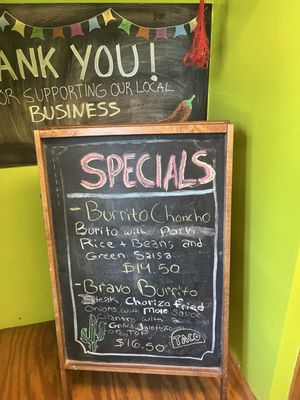 THANK YOU!
FOR SUPPORTING OUR LOCAL
BUSINESS
SPECIALS
- Burrito Chancho
Burito with Pork
Rice + Beans and
Green Salsa
$14.50
- Bravo Burrito
Steak Chorizo fried
onions with Mole sauce
cilantro with
Grilled Jalapeño
on TOP
$16.50
TACO